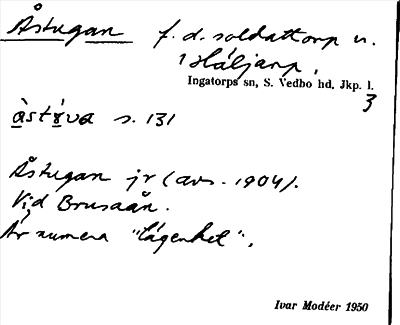 Åstugan f. d. soldattorp u.
Håljarp.
Ingatorps sn, S. Vedbo hd, Jkp. l.
3
s. 131
Åstugan jr (avs. 1904).
Vid Brusaån.
Är numera "lägenhet".
Ivar Modéer 1950